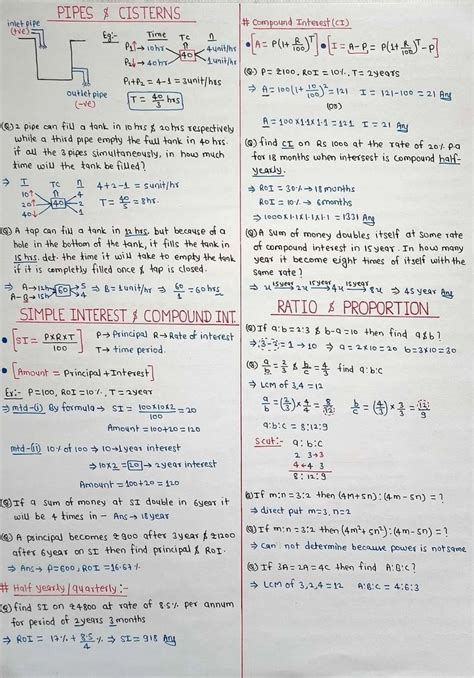 PIPES & CISTERNS
inlet pipe
(+ve)
outlet pipe
(-ve)
Eg:- Time TC n
P₂↑→ 10hr 40 4unit/hr
P₂↓→ 40hr 1unit/hr
P₁+P₂ = 4-1 = 3unit/hrs
T = 40/3 hrs
(Q) 2 pipe can fill a tank in 10 hrs & 20 hrs respectively
while a third pipe empty the full tank in 40 hrs.
if all the 3 pipes simultaneously, in how much
time will the tank be filled?
⇒ T TC n 4+2-1 = 5unit/hr
10↑ 4
20↑ 40 2 T = 40/5 = 8hr.
40↓ 1
(Q) A tap can fill a tank in 12 hrs, but because of a
hole in the bottom of the tank, it fills the tank in
15 hrs. det. the time it will take to empty the tank
if it is completly filled once & tap is closed.
A→12h 60 5 ⇒ B = 1unit/hr ⇒ 60/1 = 60 hrs
A-B→15h 4
SIMPLE INTEREST & COMPOUND INT.
• [SI = P×R×T/100] P→Principal R→Rate of interest
T→ time period.
• [Amount = Principal + Interest]
Ex:- P=100, ROI=10%, T=2year
⇒ mtd-(i) By formula → SI = 100×10×2/100 = 20
Amount = 100+20 = 120
mtd-(ii) 10% of 100 ⇒ 10→1year interest
⇒ 10×2 = 20 → 2year interest
Amount = 100+20 = 120
(Q) If a sum of money at SI double in 6year it
will be 4 times in - Ans→ 18year
(Q) A principal becomes ₹900 after 3year & ₹1200
after 6year on SI then find principal & ROI.
⇒ Ans→ P=600, ROI=16.67%
# Half yearly / quarterly :-
(Q) find SI on ₹4800 at rate of 8.5% per annum
for period of 2years 3months
⇒ ROI = 17% + 8.5/4 % ⇒ SI = 918 Ans
# Compound Interest (CI)
• [A = P(1+R/100)ᵀ] • [I = A-P, = P(1+R/100)ᵀ-P]
(Q) P = ₹100, ROI = 10%, T = 2years
⇒ A = 100(1+10/100)² = 121 I = 121-100 = 21 Ans
(OR)
A = 100×1.1×1.1 = 121 I = 21 Ans
(Q) find CI on Rs 1000 at the rate of 20% p.a
for 18 months when interest is compound half-
yearly.
⇒ ROI = 30% → 18months
ROI = 10% → 6months
⇒ 1000×1.1×1.1×1.1 = 1331 Ans
(Q) A sum of money doubles itself at some rate
of compound interest in 15year. In how many
year it become eight times of itself with the
same rate?
⇒ x 15years→ 2x 15years→ 4x 15years→ 8x ⇒ 45year Ans
RATIO & PROPORTION
(Q) If a:b = 2:3 & b-a = 10 then find a & b?
⇒ 3-2 = 1 → 10 ⇒ a = 2×10 = 20 b = 3×10 = 30
(Q) a/b = 2/3 & b/c = 4/3 find a:b:c
⇒ LCM of 3,4 = 12
a/b = (2/3)×4/4 = 8/12 b/c = (4/3)×3/3 = 12/9
a:b:c = 8:12:9
Scut:- a:b:c
2 3→3
4←4 3
8:12:9
(Q) If m:n = 3:2 then (4m+5n):(4m-5n) = ?
⇒ direct put m=3, n=2
(Q) If m:n = 3:2 then (4m²+5n²):(4m-5n) = ?
⇒ Can not determine because power is not same
(Q) If 3A = 2A = 4C then find A:B:C?
⇒ LCM of 3,2,4 = 12 A:B:C = 4:6:3